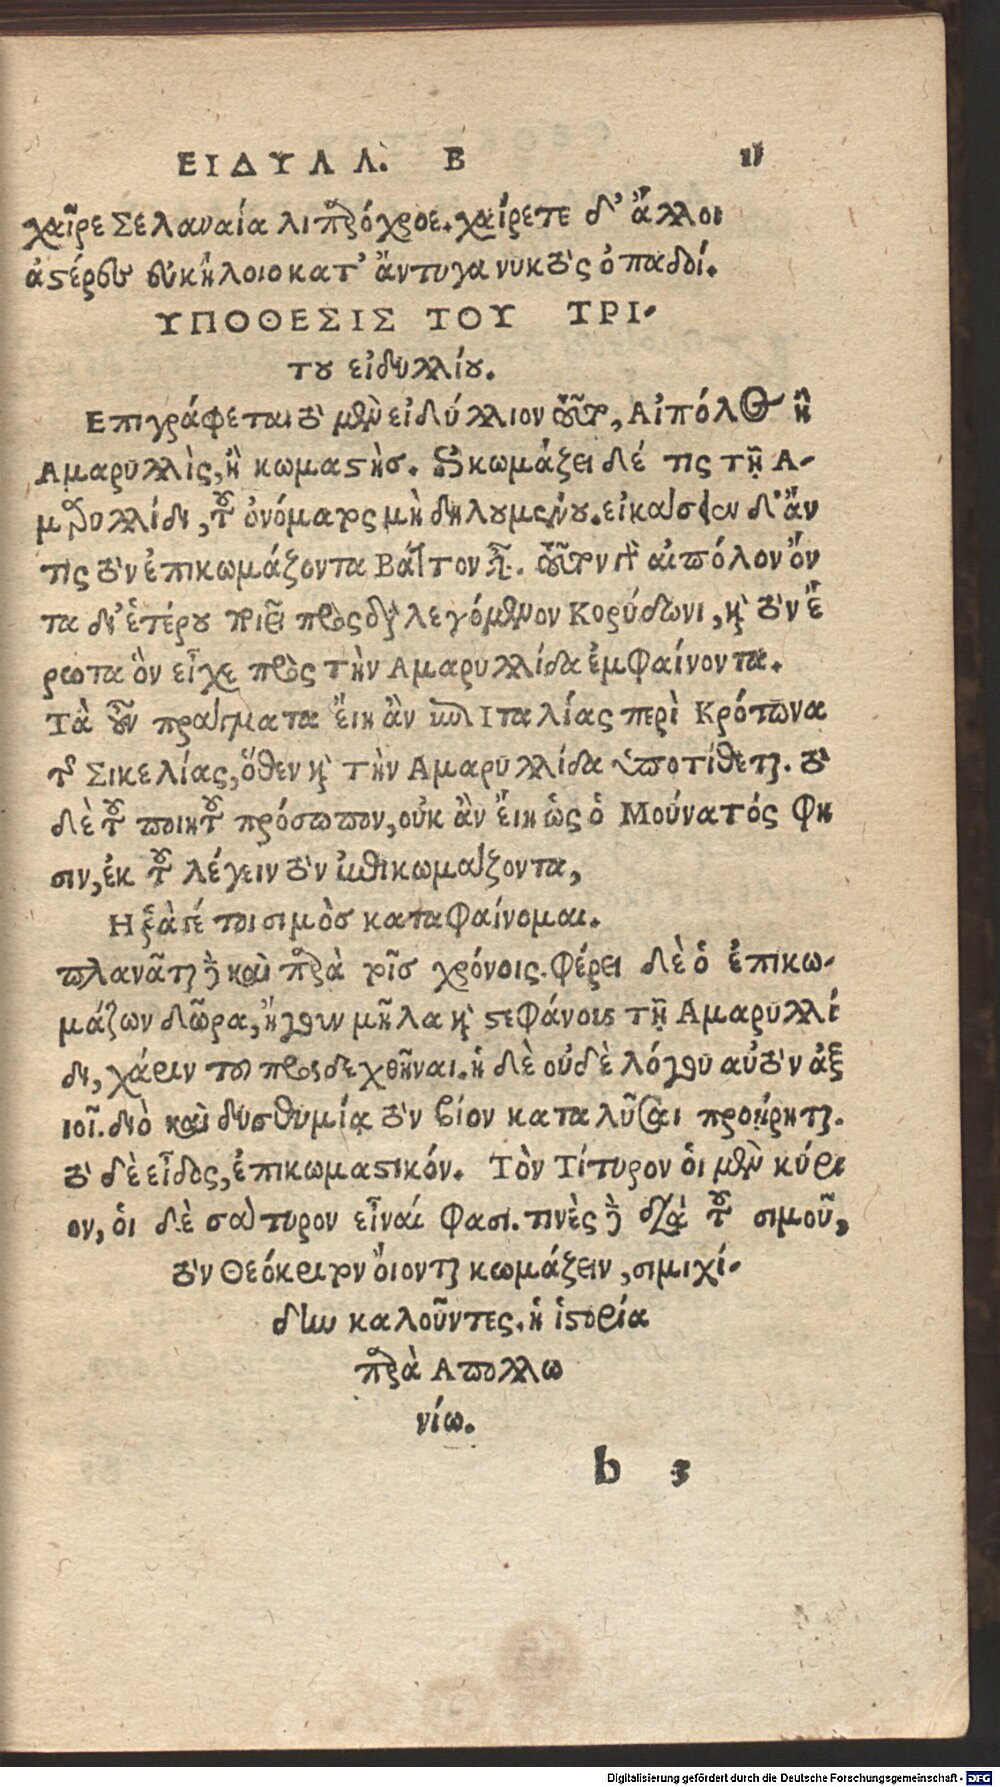 ΕΙΔΥΛΛ. Β 11
χαῖρε Σελαναία λιπαρόχροε. χαίρετε δ' ἄλλοι
ἀστέρες εὐκήλοιο κατ' ἄντυγα νυκτὸς ὀπαδοί.
ΥΠΟΘΕΣΙΣ ΤΟΥ ΤΡΙ-
του εἰδυλλίου.
Επιγράφεται τὸ μὲν εἰδύλλιον τοῦτο, Αἰπόλος ἢ
Αμαρυλλὶς, ἢ κωμαστὴσ. ἐπικωμάζει δέ τις τῇ Α-
μαρυλλίδι, τοῦ ὀνόματος μὴ δηλουμένου. εἰκάσειεν δ' ἄν
τις τὸν ἐπικωμάζοντα Βάττον εἶναι. τοῦτον γὰρ αἰπόλον ὄν
τα δι' ἑτέρου ποιεῖ προσδιαλεγόμενον Κορύδωνι, καὶ τὸν ἔ
ρωτα ὃν εἶχε πρὸς τὴν Αμαρυλλίδα ἐμφαίνοντα.
Τὰ οὖν πράγματα εἴη ἂν ἐπὶ Ιταλίας περὶ Κρότωνα
τῆς Σικελίας, ὅθεν καὶ τὴν Αμαρυλλίδα ὑποτίθεται. τὸ
δὲ τοῦ ποιητοῦ πρόσωπον, οὐκ ἂν εἴη ὡς ὁ Μούνατός φη
σιν, ἐκ τοῦ λέγειν τὸν ἐπικωμάζοντα,
Η ῥά γέ τοι σιμὸσ καταφαίνομαι.
πλανᾶται γὰρ καὶ παρὰ τοῖσ χρόνοις. φέρει δὲ ὁ ἐπικω-
μάζων δῶρα, ἤγουν μῆλα καὶ στεφάνους τῇ Αμαρυλλί
δι, χάριν τοῦ προσδεχθῆναι. ἡ δὲ οὐδὲ λόγου αὐτὸν ἀξ
ιοῖ. διὸ καὶ δυσθυμίᾳ τὸν βίον καταλῦσαι προῄρηται.
τὸ δὲ εἶδος, ἐπικωμαστικόν. Τὸν Τίτυρον οἱ μὲν κύρι
ον, οἱ δὲ σάτυρον εἶναί φασι. τινὲς γὰρ διὰ τοῦ σιμοῦ,
τὸν Θεόκριτον οἴονται κωμάζειν, σιμιχί-
δην καλοῦντες. ἡ ἱστορία
παρὰ Απολλω
νίω.
b 3
Digitalisierung gefördert durch die Deutsche Forschungsgemeinschaft - DFG